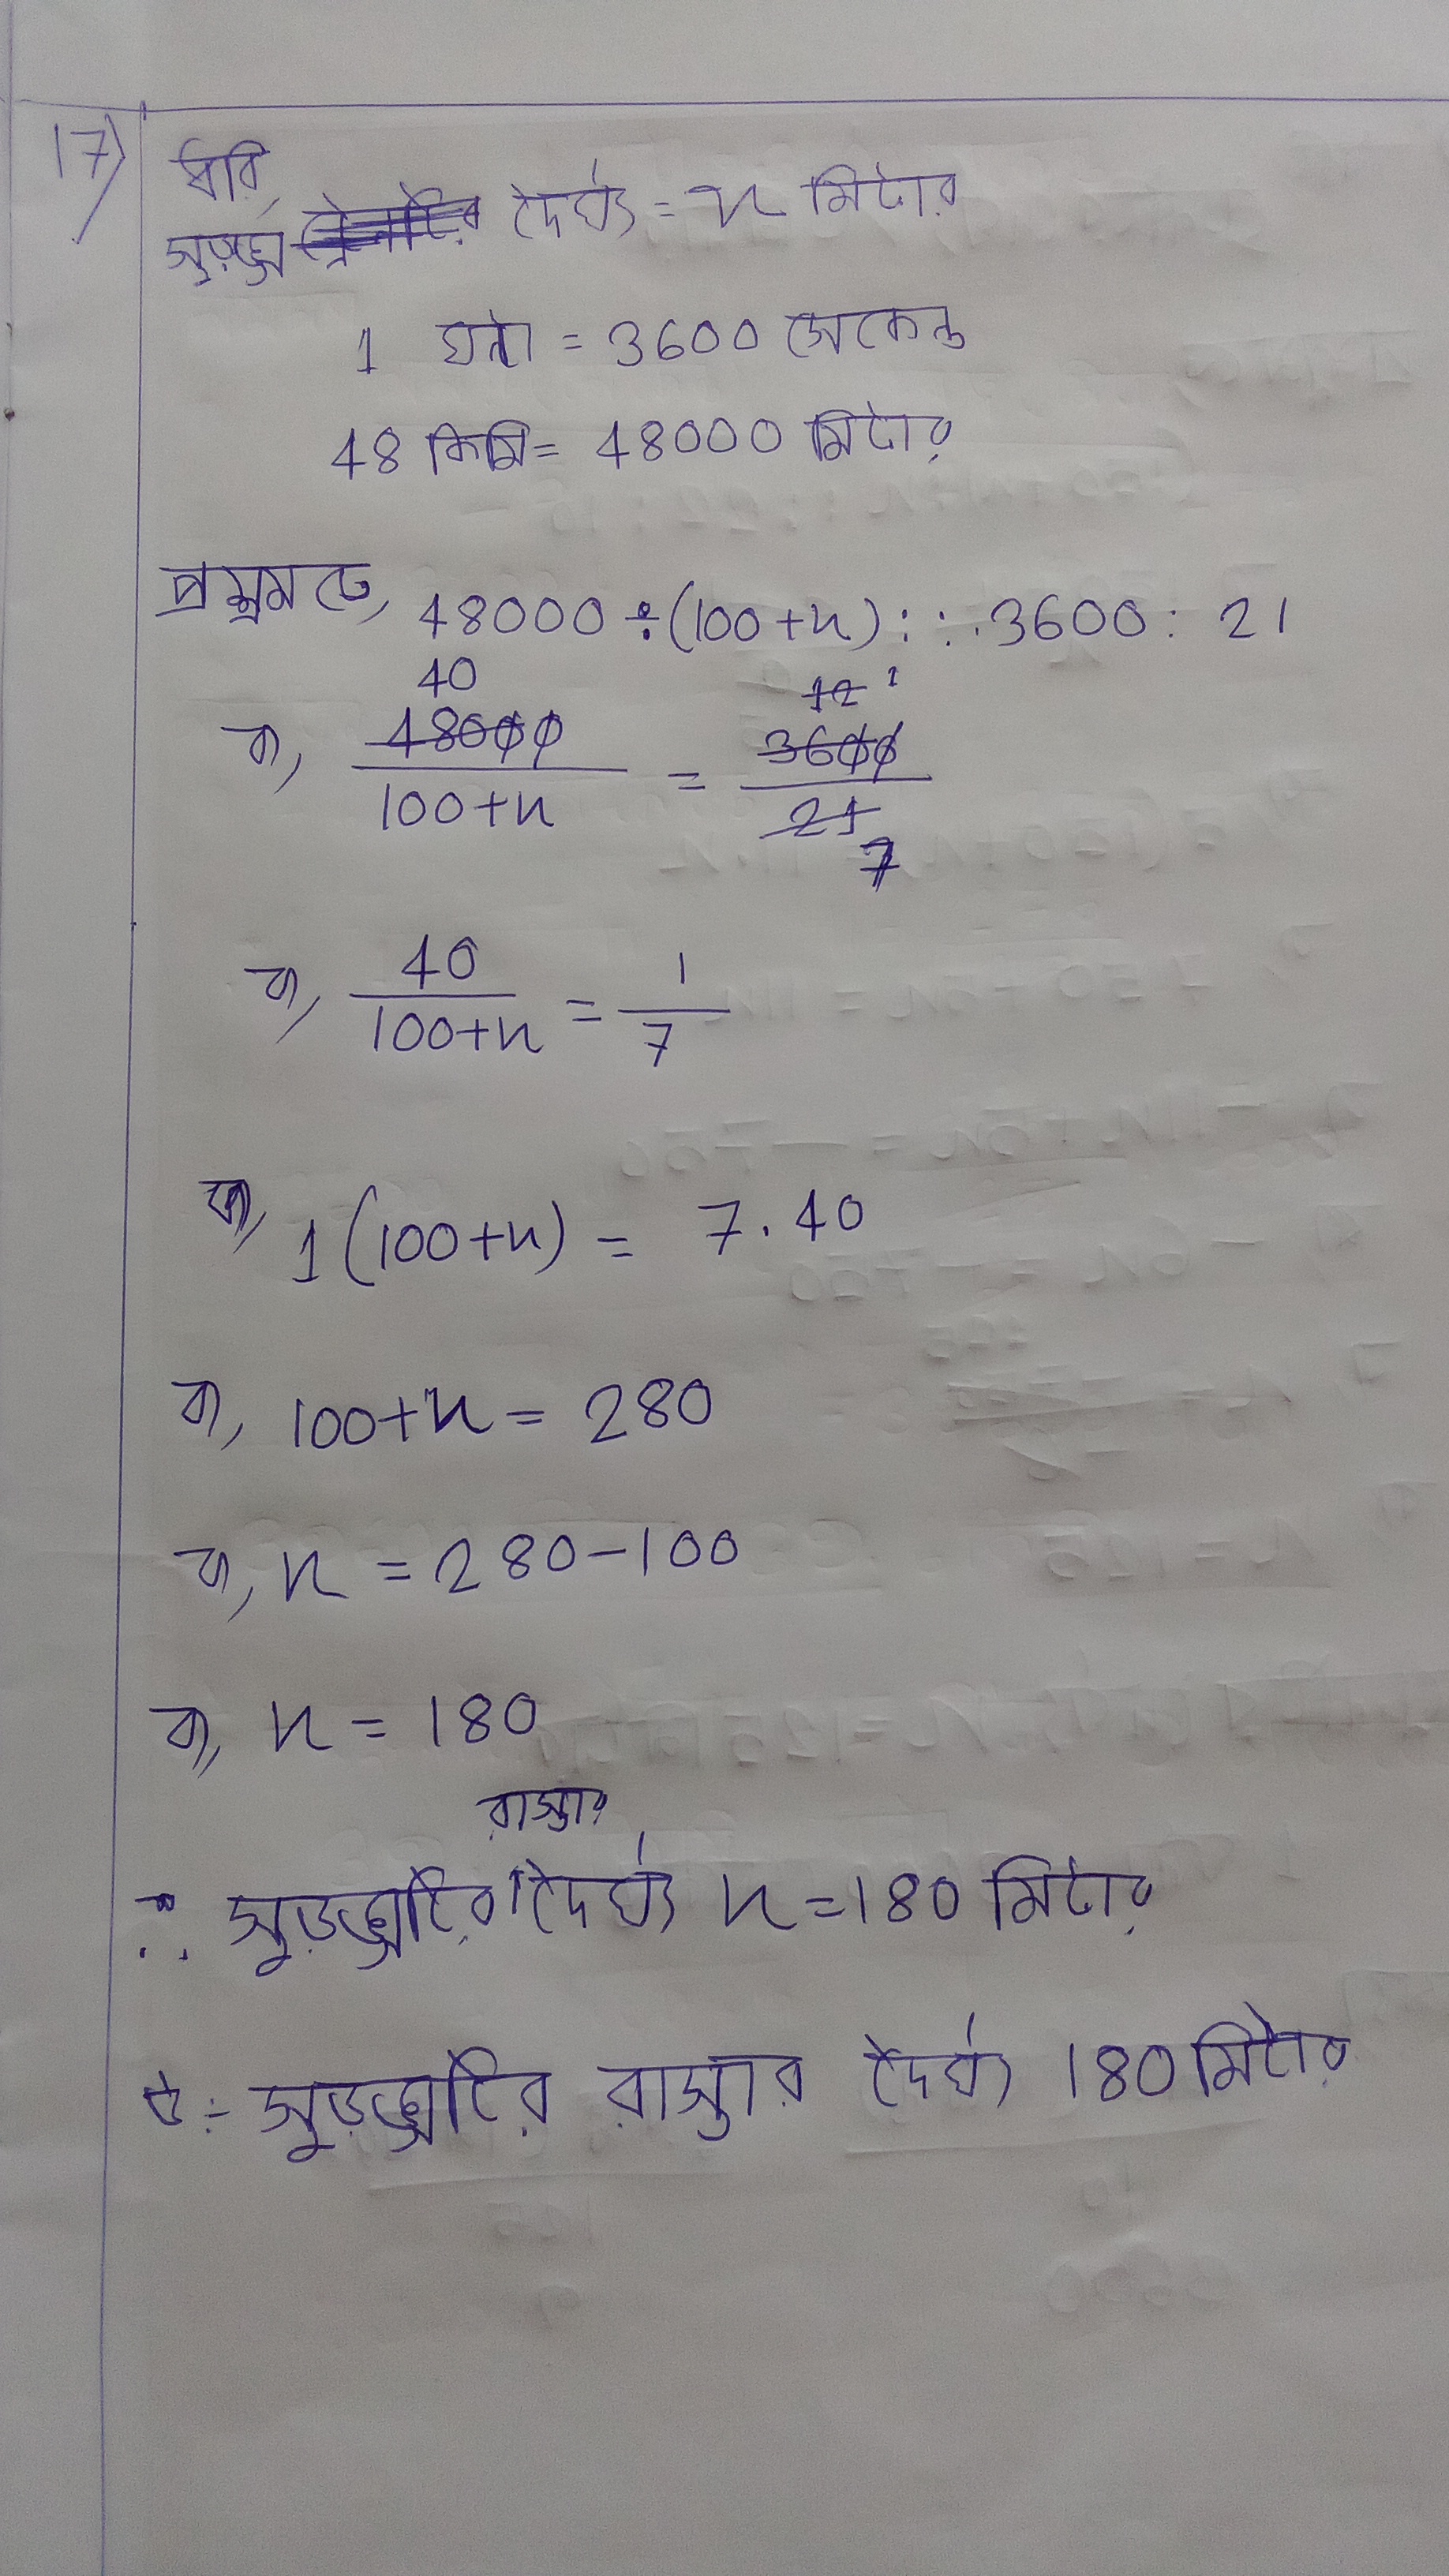 17)
ধরি,
সুড়ঙ্গ দৈর্ঘ্য = x মিটার
1 ঘন্টা = 3600 সেকেন্ড
48 কিমি = 48000 মিটার
প্রশ্নমতে, 48000 ÷ (100+x) : : 3600 : 21
40 12 1
বা, 48000/100+x = 3600/21
7
বা, 40/100+x = 1/7
বা, 1(100+x) = 7.40
বা, 100+x = 280
বা, x = 280-100
বা, x = 180
রাস্তার
∴ সুড়ঙ্গটির দৈর্ঘ্য x = 180 মিটার
উঃ- সুড়ঙ্গটির রাস্তার দৈর্ঘ্য 180 মিটার